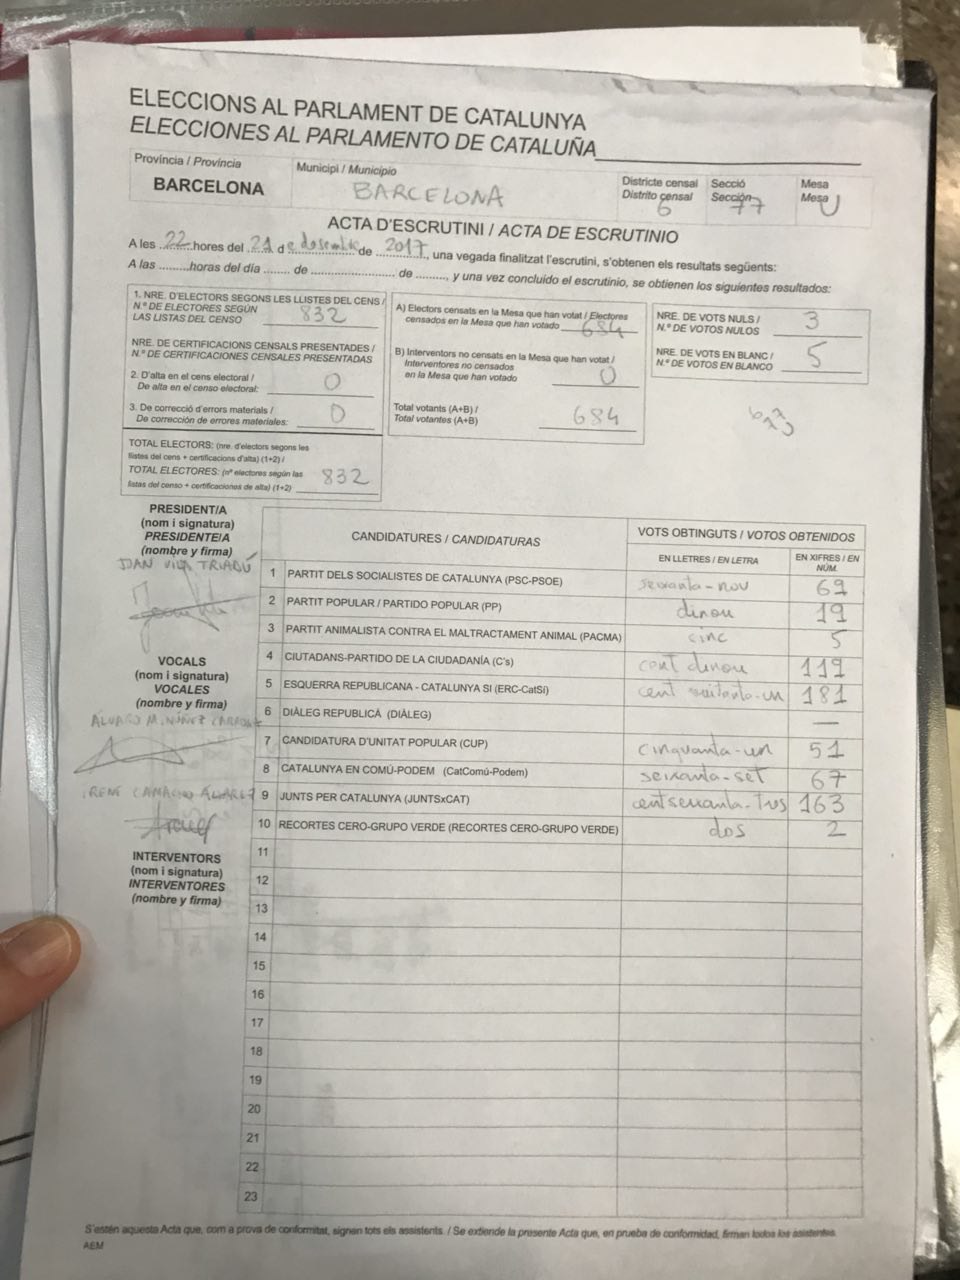 ELECCIONS AL PARLAMENT DE CATALUNYA
ELECCIONES AL PARLAMENTO DE CATALUÑA
Província / Provincia
BARCELONA
Municipi / Municipio
BARCELONA
Districte censal
Distrito censal
6
Secció
Sección
77
Mesa
Mesa
U
ACTA D'ESCRUTINI / ACTA DE ESCRUTINIO
A les 22 hores del 21 de desembre de 2017, una vegada finalitzat l'escrutini, s'obtenen els resultats següents:
A las .........horas del día ....... de ........................ de ........., y una vez concluido el escrutinio, se obtienen los siguientes resultados:
1. NRE. D'ELECTORS SEGONS LES LLISTES DEL CENS /
N.º DE ELECTORES SEGÚN
LAS LISTAS DEL CENSO 832
NRE. DE CERTIFICACIONS CENSALS PRESENTADES /
N.º DE CERTIFICACIONES CENSALES PRESENTADAS
2. D'alta en el cens electoral /
De alta en el censo electoral: 0
3. De correcció d'errors materials /
De corrección de errores materiales: 0
TOTAL ELECTORS: (nre. d'electors segons les
llistes del cens + certificacions d'alta) (1+2) /
TOTAL ELECTORES: (nº electores según las
listas del censo + certificaciones de alta) (1+2) 832
A) Electors censats en la Mesa que han votat / Electores
censados en la Mesa que han votado 684
B) Interventors no censats en la Mesa que han votat /
Interventores no censados
en la Mesa que han votado 0
Total votants (A+B) /
Total votantes (A+B) 684
NRE. DE VOTS NULS /
N.º DE VOTOS NULOS 3
NRE. DE VOTS EN BLANC /
N.º DE VOTOS EN BLANCO 5
PRESIDENT/A
(nom i signatura)
PRESIDENTE/A
(nombre y firma)
JOAN VILA TRIADÚ
VOCALS
(nom i signatura)
VOCALES
(nombre y firma)
ÁLVARO M. NÚÑEZ
IRENE CAMACHO ÁLVAREZ
INTERVENTORS
(nom i signatura)
INTERVENTORES
(nombre y firma)
CANDIDATURES / CANDIDATURAS
VOTS OBTINGUTS / VOTOS OBTENIDOS
EN LLETRES / EN LETRA
EN XIFRES / EN NÚM.
1 PARTIT DELS SOCIALISTES DE CATALUNYA (PSC-PSOE) seixanta-nou 69
2 PARTIT POPULAR / PARTIDO POPULAR (PP) dinou 19
3 PARTIT ANIMALISTA CONTRA EL MALTRACTAMENT ANIMAL (PACMA) cinc 5
4 CIUTADANS-PARTIDO DE LA CIUDADANÍA (C's) cent dinou 119
5 ESQUERRA REPUBLICANA - CATALUNYA SI (ERC-CatSí) cent vuitanta-un 181
6 DIÀLEG REPUBLICÀ (DIÀLEG) —
7 CANDIDATURA D'UNITAT POPULAR (CUP) cinquanta-un 51
8 CATALUNYA EN COMÚ-PODEM (CatComú-Podem) seixanta-set 67
9 JUNTS PER CATALUNYA (JUNTSxCAT) cent seixanta-tres 163
10 RECORTES CERO-GRUPO VERDE (RECORTES CERO-GRUPO VERDE) dos 2
11
12
13
14
15
16
17
18
19
20
21
22
23
S'estén aquesta Acta que, com a prova de conformitat, signan tots els assistents. / Se extiende la presente Acta que, en prueba de conformidad, firman todos los asistentes.
AEM